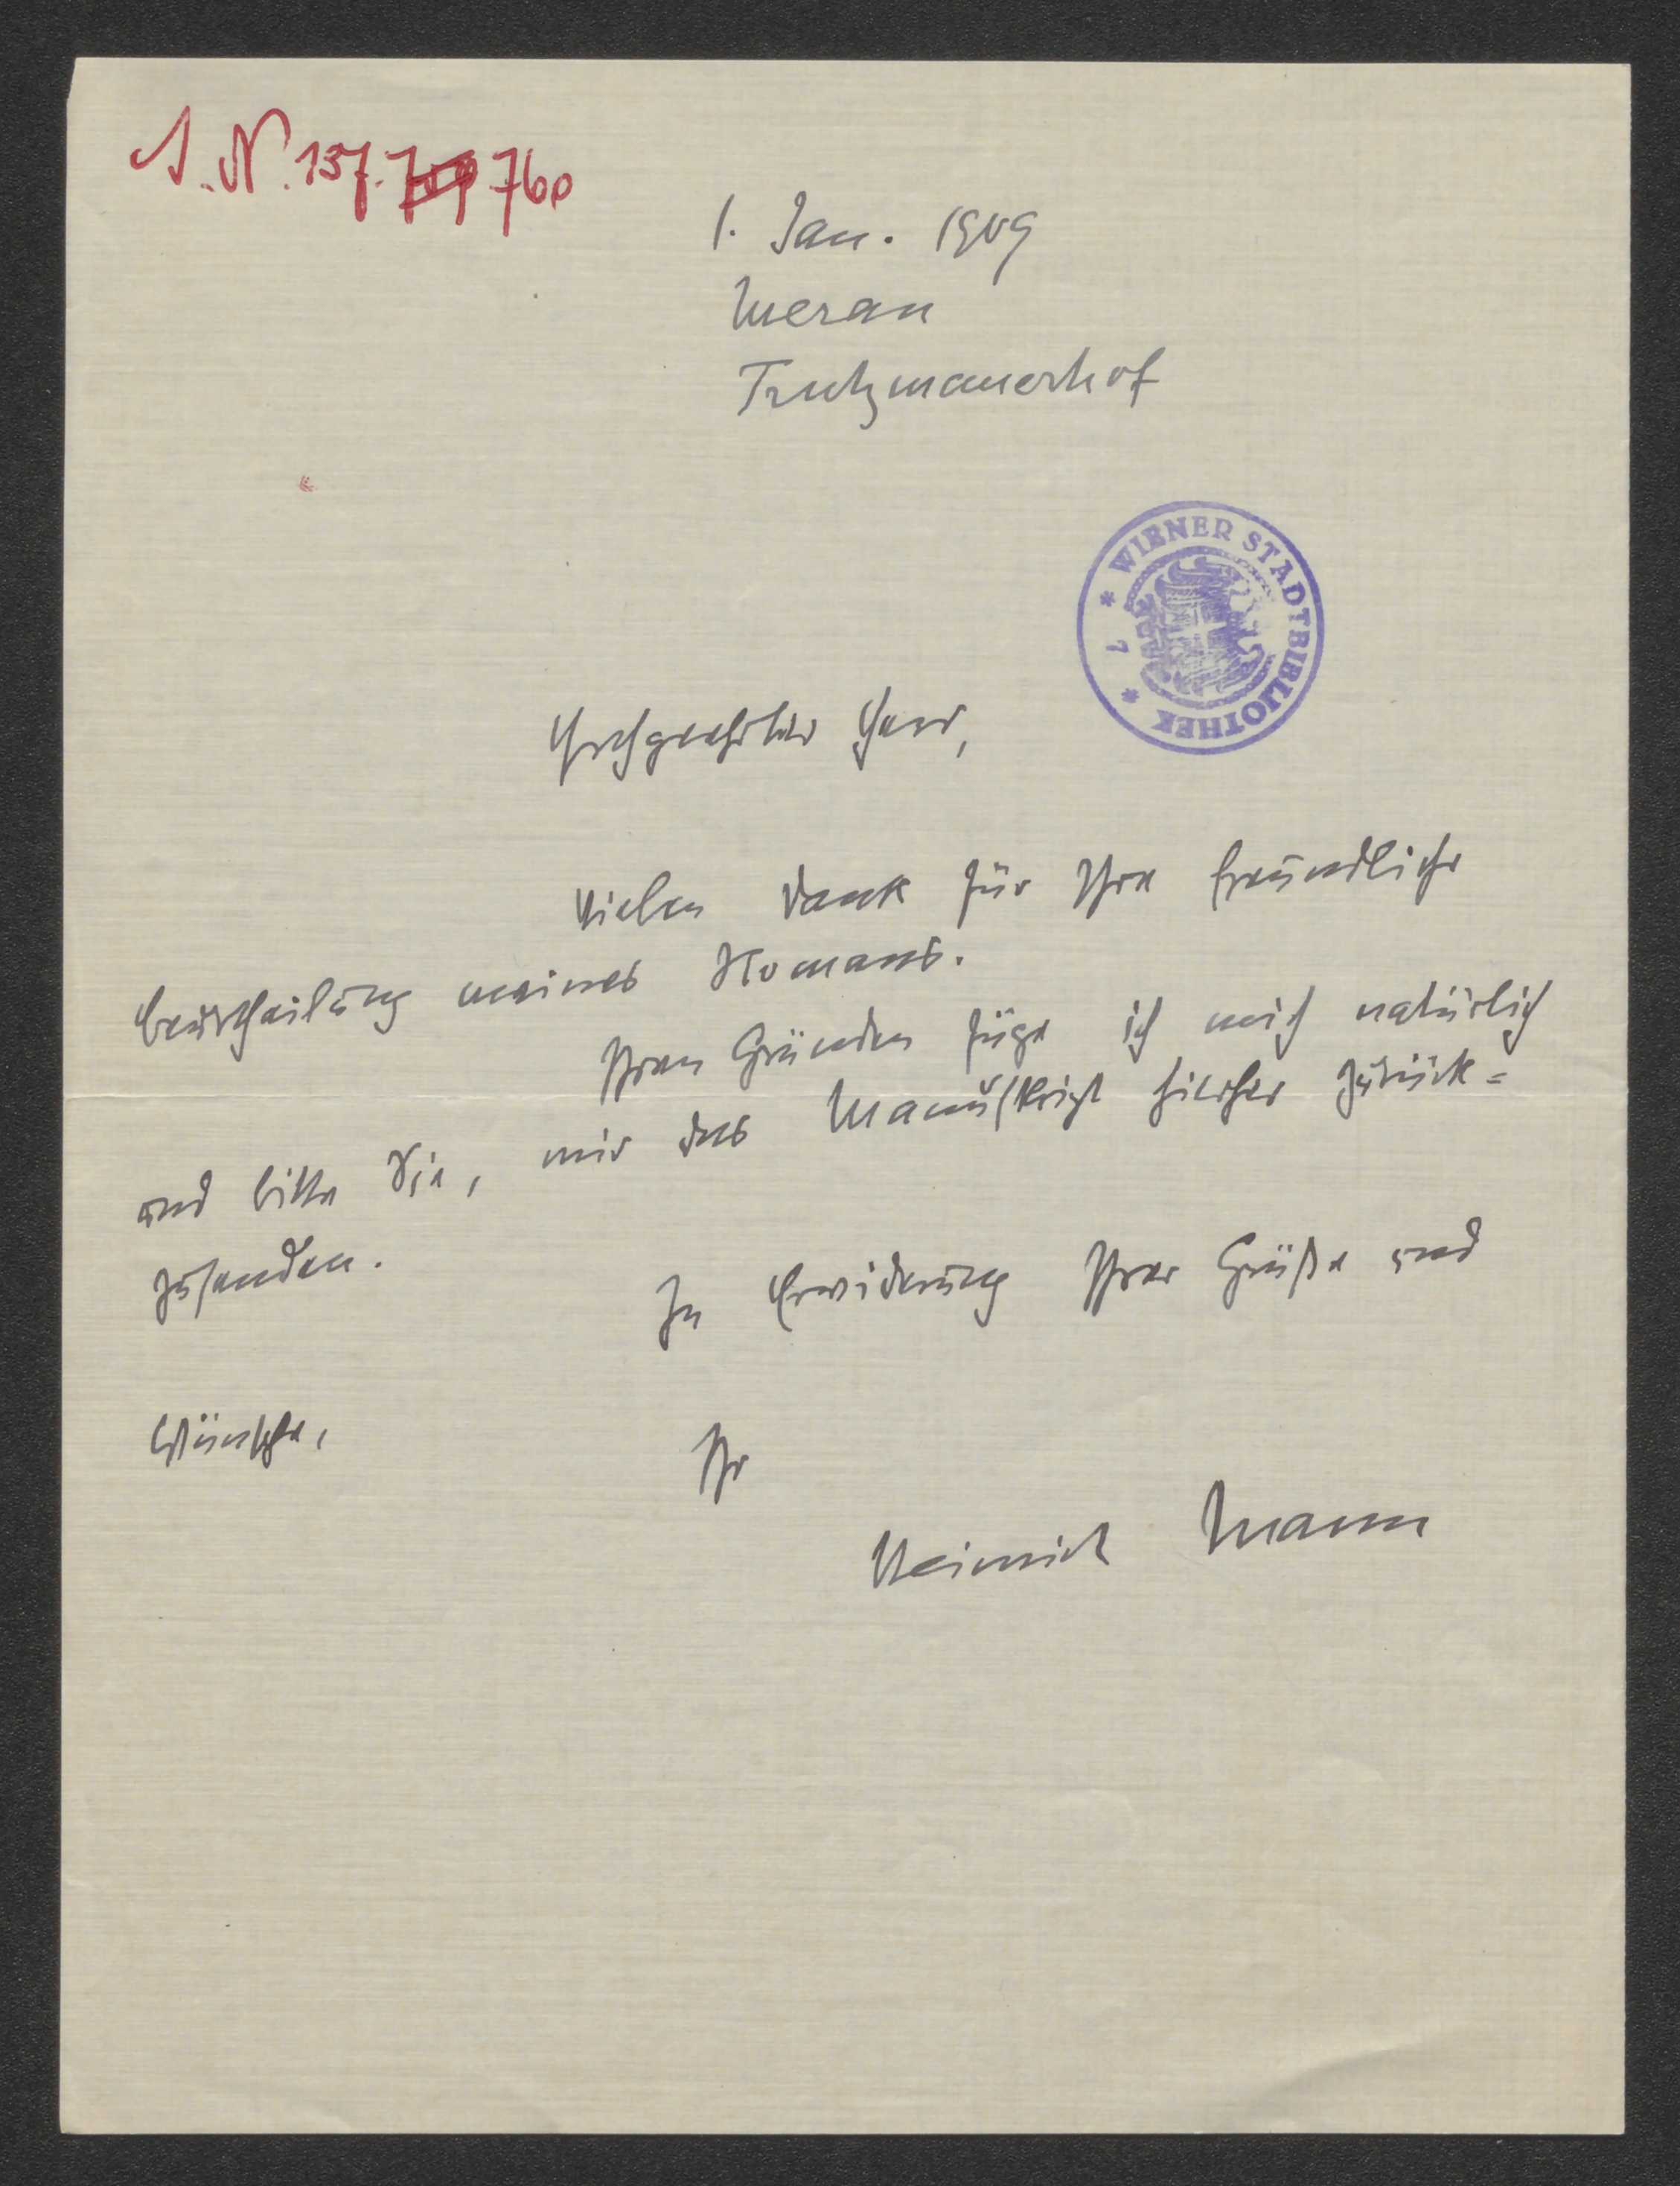 I.N. 137.760
1. Jan. 1909
Meran
Trutzmauerhof
* WIENER STADTBIBLIOTHEK * 7
Hochgeehrter Herr,
vielen Dank für Ihre freundliche
Beurtheilung meines Romans.
Ihren Gründen füge ich mich natürlich
und bitte Sie, mir das Manuskript hierher zurück=
zusenden.
In Erwiderung Ihrer Grüße und
Wünsche,
Ihr
Heinrich Mann